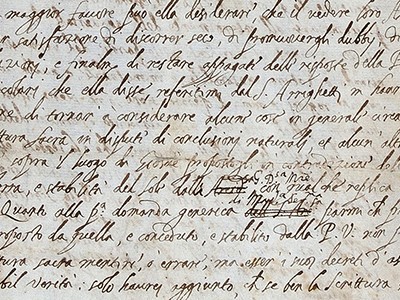 maggior favore può ella desiderar' che il vedere loro
satisfazione di discorrer seco, di promuovergli dubbij, di
e finalm. di restare appagate dell' risposte della P.
colari che ella disse, referitimi dal S. Arrighetti, m' hann
di tornar' a considerare alcune cose in general' circa
tura sacra in dispute di conclusioni naturali, et alcun' altre
sopra 'l luogo di Giosuè propostoli, in contradizione del
rra, e stabilità del sole dalla G. D. Mre con qualche replica
di Mad. Ser.
Quanto alla pa. domanda generica parmi ch. p
roposto da quella, e conceduto, e stabilito dalla P. V. non p
tura sacra mentire, o errare; ma esser i suoi decreti d' as
bil verità: solo haurei aggiunto ch. se ben la scrittura